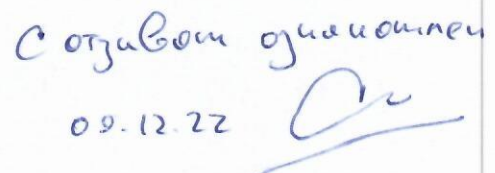 С отзывом ознакомлен
09.12.22